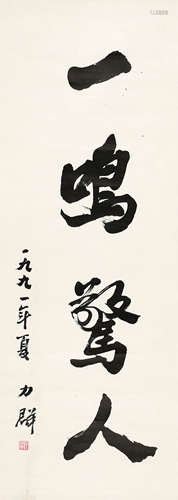 一鸣驚人
一九九一年夏 力群